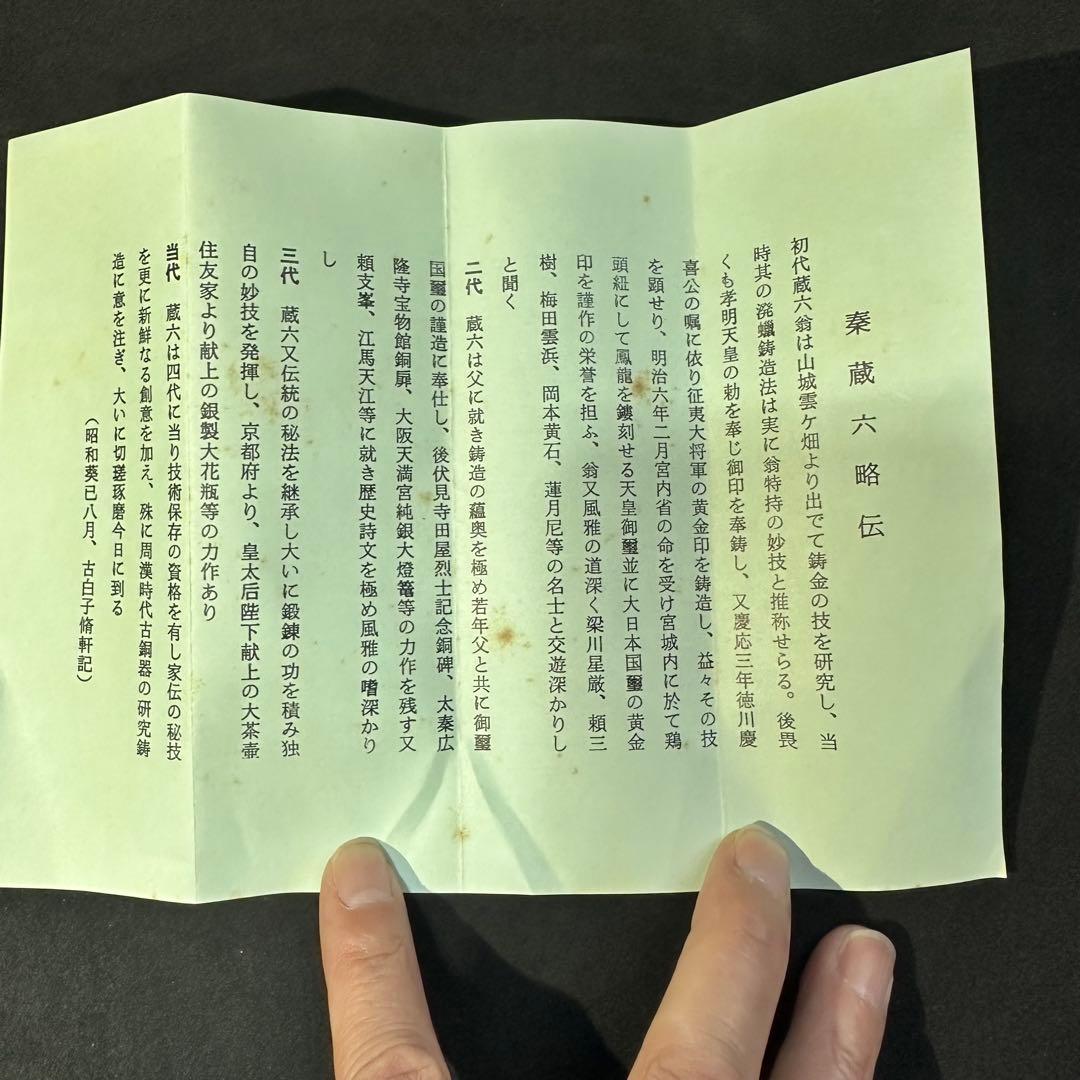 秦蔵六略伝
初代蔵六翁は山城雲ケ畑より出でて鋳金の技を研究し、当
時其の溌蠟鋳造法は実に翁特持の妙技と推称せらる。後畏
くも孝明天皇の勅を奉じ御印を奉鋳し、又慶応三年徳川慶
喜公の嘱に依り征夷大将軍の黄金印を鋳造し、益々その技
を顕せり、明治六年二月宮内省の命を受け宮城内に於て鶏
頭紐にして鳳龍を鏤刻せる天皇御璽並に大日本国璽の黄金
印を謹作の栄誉を担ふ、翁又風雅の道深く梁川星厳、頼三
樹、梅田雲浜、岡本黄石、蓮月尼等の名士と交遊深かりし
と聞く
二代　蔵六は父に就き鋳造の蘊奥を極め若年父と共に御璽
国璽の謹造に奉仕し、後伏見寺田屋烈士記念銅碑、太秦広
隆寺宝物館銅扉、大阪天満宮純銀大燈篭等の力作を残す又
頼支峯、江馬天江等に就き歴史詩文を極め風雅の嗜深かり
し
三代　蔵六又伝統の秘法を継承し大いに鍛錬の功を積み独
自の妙技を発揮し、京都府より、皇太后陛下献上の大茶壷
住友家より献上の銀製大花瓶等の力作あり
当代　蔵六は四代に当り技術保存の資格を有し家伝の秘技
を更に新鮮なる創意を加え、殊に周漢時代古銅器の研究鋳
造に意を注ぎ、大いに切磋琢磨今日に到る
（昭和葵已八月、古白子脩軒記）